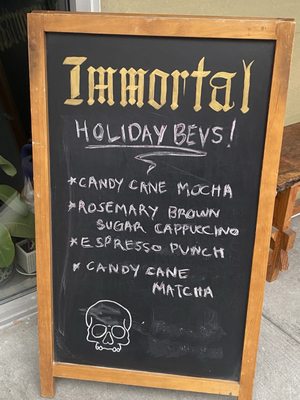 Immortal
HOLIDAY BEVS!
*CANDY CANE MOCHA
*ROSEMARY BROWN
SUGAR CAPPUCCINO
*ESPRESSO PUNCH
*CANDY CANE
MATCHA